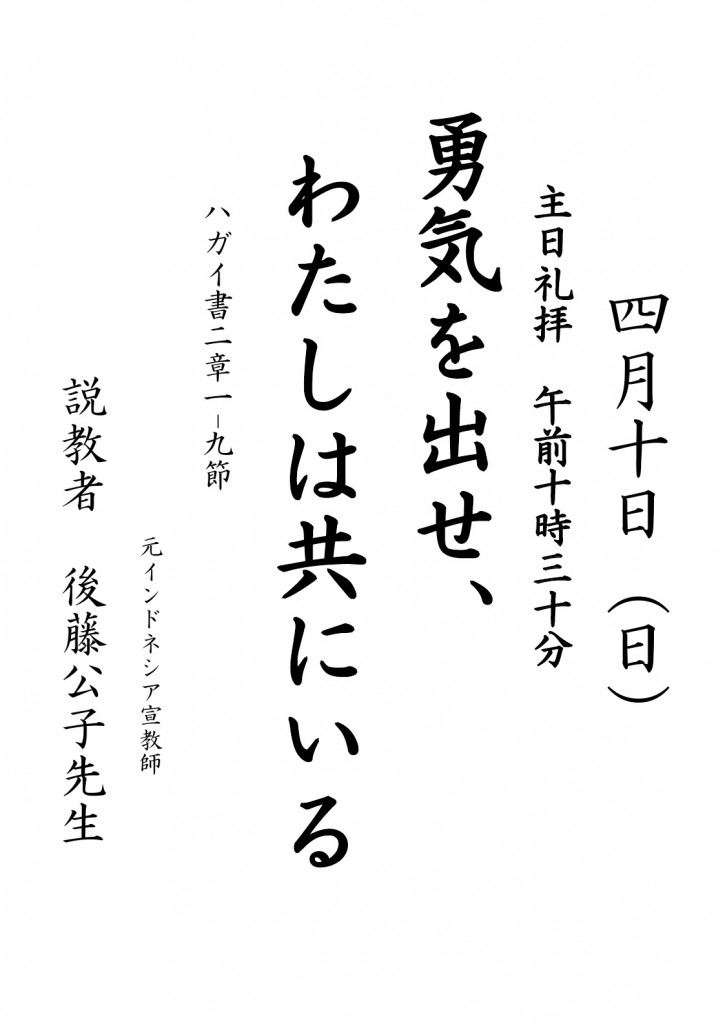 四月十日（日）
主日礼拝　午前十時三十分
勇気を出せ、
わたしは共にいる
ハガイ書二章一－九節
元インドネシア宣教師
説教者　後藤公子先生